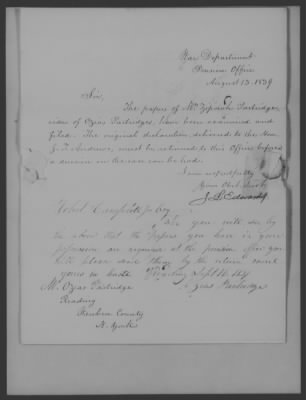 War Department
Pension Office
August 13, 1839
Sir,
The papers of Mrs Zipporah Partridge,
widow of Ozias Partridge, have been examined and
filed. The original declaration delivered to the Hon.
J. T. Andrews, must be returned to this Office before
a decision in the case can be had.
I am respectfully
Your Obt. Servt.
J. L. Edwards
Robert Campbell Jr Esqr
you will see by
the above that the papers you have in your
possession are required at the pension office you
will please send them by the return mail
yours in haste Sept 16
Ozias Partridge
Mr. Ozias Partridge
Reading
Steuben County
N. York